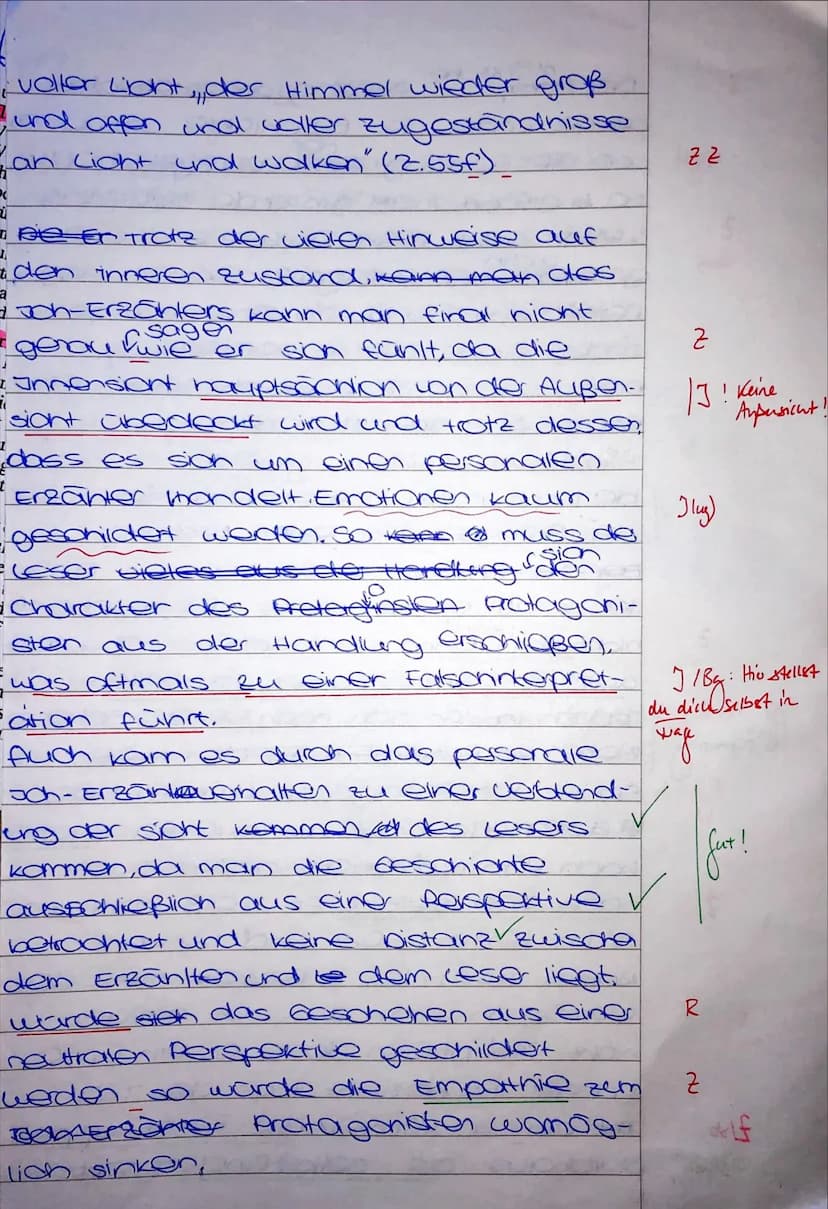 voller Licht „der Himmel wieder groß
und offen und voller Zugeständnisse
an Licht und Wolken" (Z.55f)
Z Z
Die Er Trotz der vielen Hinweise auf
den inneren Zustand, kann man des
Ich-Erzählers kann man final nicht
sagen
genau wie er sich fühlt, da die
Z
Innensicht hauptsächlich von der Außen-
I! Keine
sicht überdeckt wird und trotz dessen,
Außensicht!
dass es sich um einen personalen
Erzähler handelt. Emotionen kaum
geschildert werden. So kann muss der
sich
Leser vieles aus der Handlung den
Charakter des Protagoni-
sten aus der Handlung erschießen,
was oftmals zu einer Falschinterpret-
I/Bg: Hier stellst
du dich selbst in
Frage
ation führt.
Auch kam es durch das personale
Ich-Erzählverhalten zu einer Verblend-
ung der Sicht kommen des Lesers
kommen, da man die Geschichte
gut!
ausschließlich aus einer Perspektive
betrachtet und keine Distanz zwischen
dem Erzählten und dem Leser liegt.
würde sich das Geschehen aus einer
R
neutralen Perspektive geschildert
werden so würde die Empathie zum
Z
Ich-Erzähler Protagonisten womög-
lich sinken.